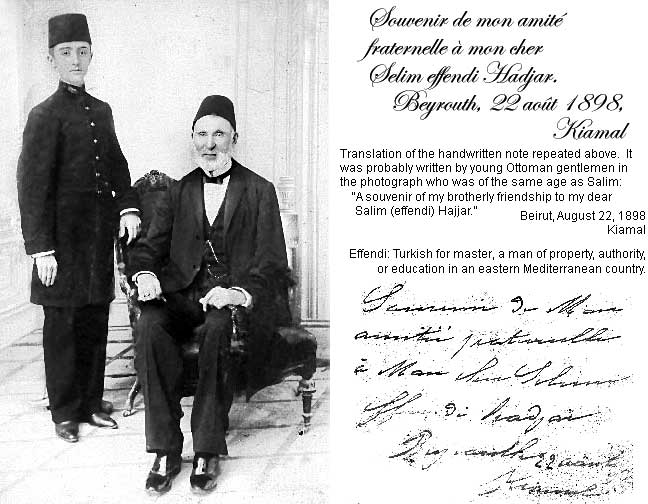 Souvenir de mon amité
fraternelle à mon cher
Selim effendi Hadjar.
Beyrouth, 22 août 1898,
Kiamal
Translation of the handwritten note repeated above. It
was probably written by young Ottoman gentlemen in
the photograph who was of the same age as Salim:
"A souvenir of my brotherly friendship to my dear
Salim (effendi) Hajjar."
Beirut, August 22, 1898
Kiamal
Effendi: Turkish for master, a man of property, authority,
or education in an eastern Mediterranean country.
Souvenir de Mon
amitié fraternelle
à Mon cher Selim
Effendi hadjar
Beyrouth 22 août
Kiamal